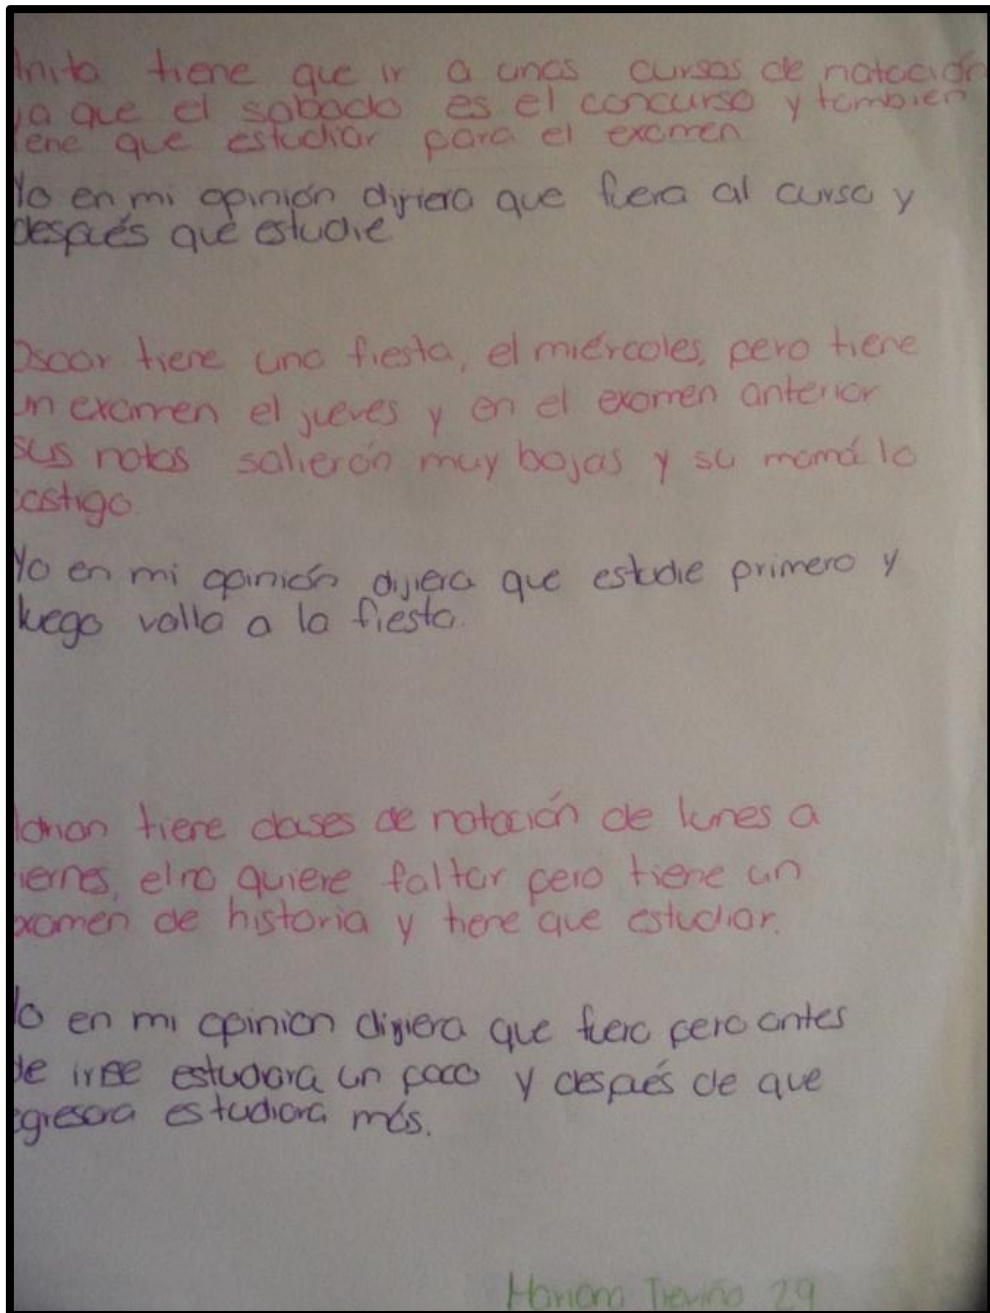 Anita tiene que ir a unas cursos de natación
ya que el sabado es el concurso y tambien
tiene que estudiar para el examen
Yo en mi opinión dijiera que fuera al curso y
después que estudie
Oscar tiene una fiesta, el miércoles, pero tiene
un examen el jueves y en el examen anterior
sus notas salierón muy bajas y su mamá lo
castigo
Yo en mi opinión dijiera que estudie primero y
luego valla a la fiesta.
tiene clases de natación de lunes a
viernes, el no quiere faltar pero tiene un
examen de historia y tiene que estudiar.
Yo en mi opinion dijiera que fuera pero antes
de irse estudiara un poco y después de que
regresara estudiara más.
Mariana Treviño 29